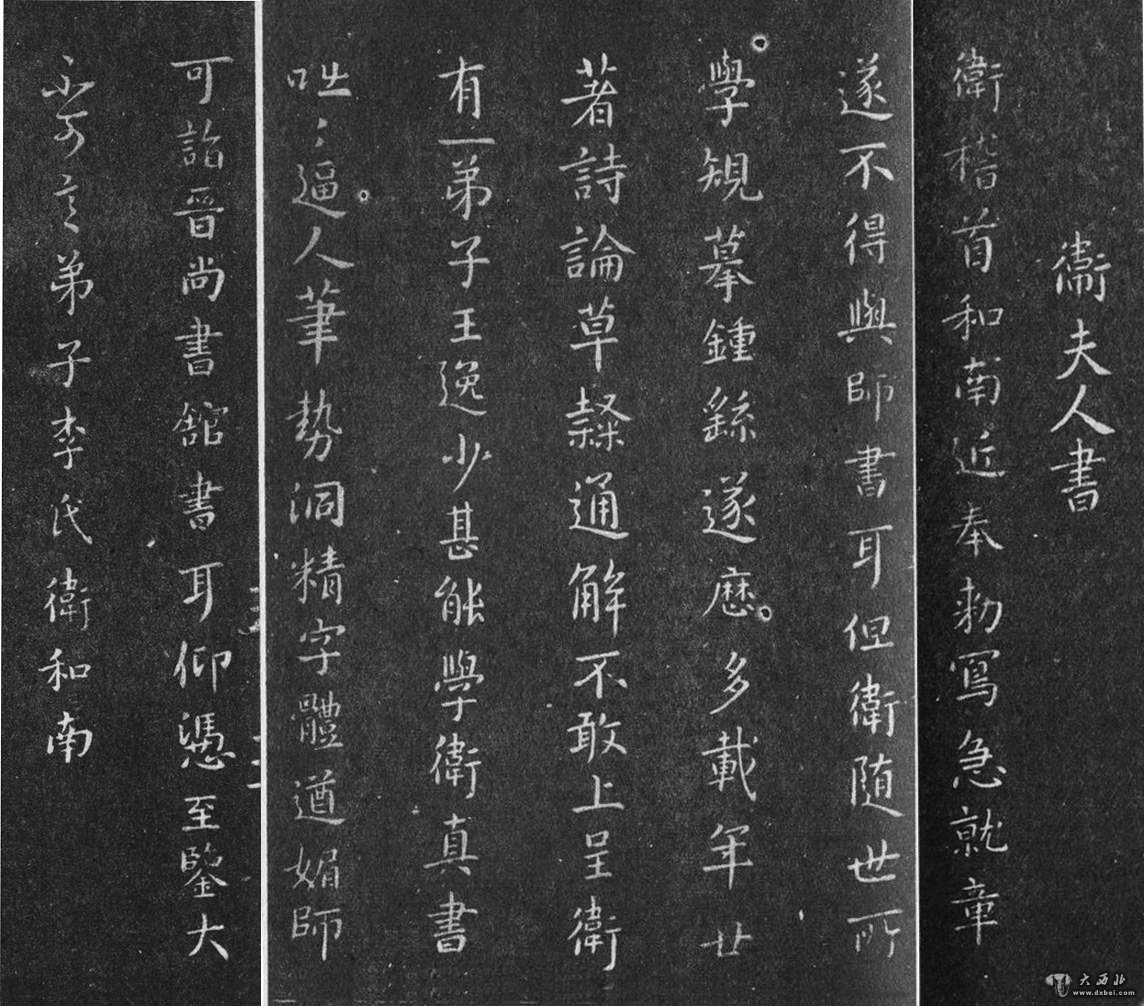 衛夫人書
衛稽首和南近奉勅寫急就章
遂不得與師書耳但衛隨世所
學規摹鍾繇遂歷多載年廿
著詩論草隸通解不敢上呈衛
有一弟子王逸少甚能學衛真書
咄〻逼人筆勢洞精字體遒媚師
可詣晉尚書館書耳仰憑至鑒大
不可言弟子李氏衛和南
大西北
www.dxbei.com